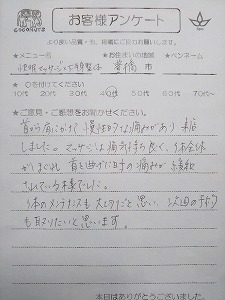 お客様アンケート
より良い品質・お、接客にご協力お願いします。
★メニュー名 ★お住まいの地区 ★ペンネーム
市
★ ○を付けてください
10代 20代 30代 40代 50代 60代 70代~
★ご意見・ご感想をお聞かせください。
首から肩にかけて慢性的な痛みがあり 来店
しました。マッサージは痛気持ち良く、体全体
がほぐれ 首を曲げた時の痛みが 緩和
されている様でした。
体のメンテナンスも大切だと思い、次回の予約
も取りたいと思います。
本日はありがとうございました。